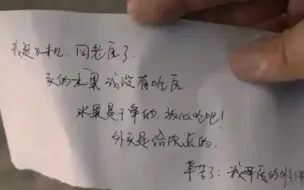 我赶飞机，回老底了．
买的水果我没有吃底
水果是干净的，放心吃吧！
外卖是给你点的．
辛苦了：我